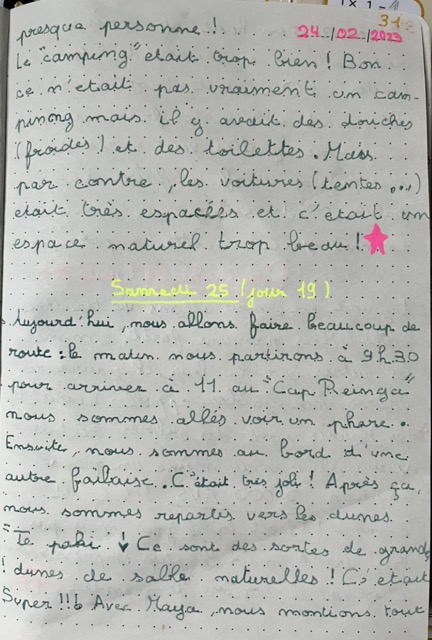 31
presque personne !! 24/02/2023
Le "camping" etait trop bien ! Bon
ce n'etait pas vraiment un cam-
pinong mais il y avait des douches
(froides) et des toilettes. Mais
par contre, les voitures (tentes,...)
etait très espacées et c'etait un
espace naturel trop beau !
Samedi 25 (jour 19)
Aujourd'hui, nous allons faire beaucoup de
route : le matin nous partirons à 9h30
pour arriver à 11 au "Cap Reinga"
nous sommes allés voir un phare.
Ensuite, nous sommes au bord d'une
autre failaise. C'était très joli ! Après ça,
nous sommes repartis vers les dunes.
"Te paki ! Ce sont des sortes de grands
dunes de sable naturelles ! C'etait
Super !!! Avec Maya, nous montions tout